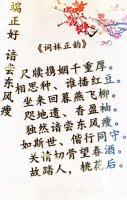 端正好 谙尝东风瘦
《词林正韵》
尺牍携姻千重厚。
相思种、谁播红豆。
坐来回暮燕飞柳。
咫地遣、香盈袖。
独然谙尝东风瘦。
如斯世、偕行同守。
关请切骨望春酒。
故路人，桃花后。